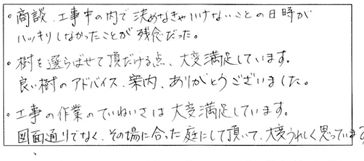 ・商談、工事中の内で決めなきゃいけないことの日時が
ハッキリしなかったことが残念だった。
・樹を選らばせて頂だける点、大変満足しています。
良い樹のアドバイス、案内、ありがとうございました。
・工事の作業のていねいさは大変満足しています。
図面通りでなく、その場に合った庭にして頂いて、大変うれしく思っています